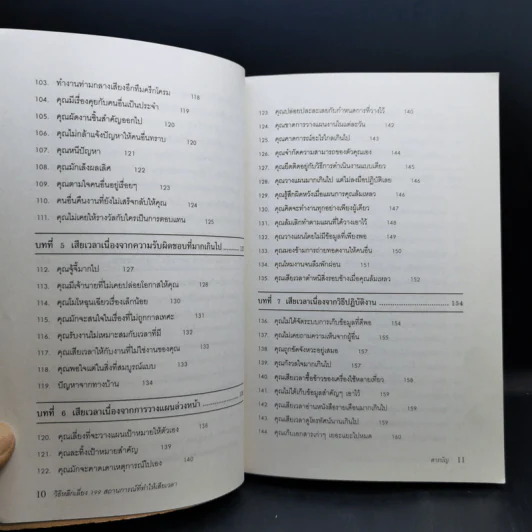 103. ทำงานท่ามกลางเสียงอึกทึกครึกโครม 118
104. คุณมีเรื่องคุยกับคนอื่นเป็นประจำ 119
105. คุณผัดงานชิ้นสำคัญออกไป 120
106. คุณไม่กล้าแจ้งปัญหาให้คนอื่นทราบ 120
107. คุณหนีปัญหา 121
108. คุณมักเล็งผลเลิศ 122
109. คุณตามใจคนอื่นอยู่เรื่อยๆ 123
110. คนอื่นคืนงานที่ยังไม่เสร็จกลับให้คุณ 124
111. คุณไม่เคยให้รางวัลกับใครเป็นการตอบแทน 125
บทที่ 5 เสียเวลาเนื่องจากความรับผิดชอบที่มากเกินไป
112. คุณรู้จี้มากไป 127
113. คุณมีเจ้านายที่ไม่เคยปล่อยโอกาสให้คุณ 128
114. คุณโมโหฉุนเฉียวเรื่องเล็กน้อย 130
115. คุณมักจะสนใจในเรื่องที่ไม่ถูกกาลเทศะ 131
116. คุณรับงานไม่เหมาะสมกับเวลาที่มี 132
117. คุณเสียเวลาให้กับงานที่ไม่ใช่งานของคุณ 132
118. คุณพอใจแต่ในสิ่งที่สมบูรณ์แบบ 133
119. ปัญหาจากทางบ้าน 134
บทที่ 6 เสียเวลาเนื่องจากการวางแผนล่วงหน้า
120. คุณเลี่ยงที่จะวางแผนเป้าหมายให้ตัวเอง 138
121. คุณละทิ้งเป้าหมายสำคัญ 139
122. คุณมักจะคาดเดาเหตุการณ์ไปเอง 140
10 วิธีหลีกเลี่ยง 199 สถานการณ์ที่ทำให้เสียเวลา
123. คุณปล่อยปละละเลยกับกำหนดการที่วางไว้ 140
คุณขาดการวางแผนงานในแต่ละวัน 142
คุณคาดการณ์อะไรไกลเกินไป
คุณจำกัดความสามารถของตัวคุณเอง
คุณยึดติดอยู่กับวิธีการดำเนินงานแบบเดียว
คุณวางแผนมากเกินไป แต่ไม่ลงมือปฏิบัติเลย
คุณรู้สึกผิดหวังเมื่อแผนการคุณล้มเหลว
คุณคิดจะทำงานทุกอย่างเพียงผู้เดียว
คุณล้มเลิกทำตามแผนที่ได้วางเอาไว้
คุณวางแผนโดยไม่มีข้อมูลที่เพียงพอ 150
คุณมองข้ามการถ่ายทอดงานให้คนอื่น 150
คุณโหมงานจนลืมพักผ่อน 151
คุณเสียเวลาตำหนิสิ่งรอบข้างเมื่อคุณล้มเหลว 152
บทที่ 7 เสียเวลาเนื่องจากวิธีปฏิบัติงาน 154
136. คุณไม่ได้จัดระบบการเก็บข้อมูลที่ดีพอ 154
คุณไม่เคยถามความเห็นจากผู้อื่น
คุณถูกขัดจังหวะอยู่เสมอ 157
คุณกังวลใจมากเกินไป 157
คุณเสียเวลาซื้อข้าวของเครื่องใช้หลายเที่ยว 158
คุณไม่ได้เก็บข้อมูลสำคัญๆ เอาไว้
คุณเสียเวลาอ่านหนังสือรายเดือนมากเกินไป
คุณเสียเวลาดูโทรทัศน์นานเกินไป
คุณเก็บเอกสารเก่าๆ เยอะแยะไปหมด
สารบัญ 11